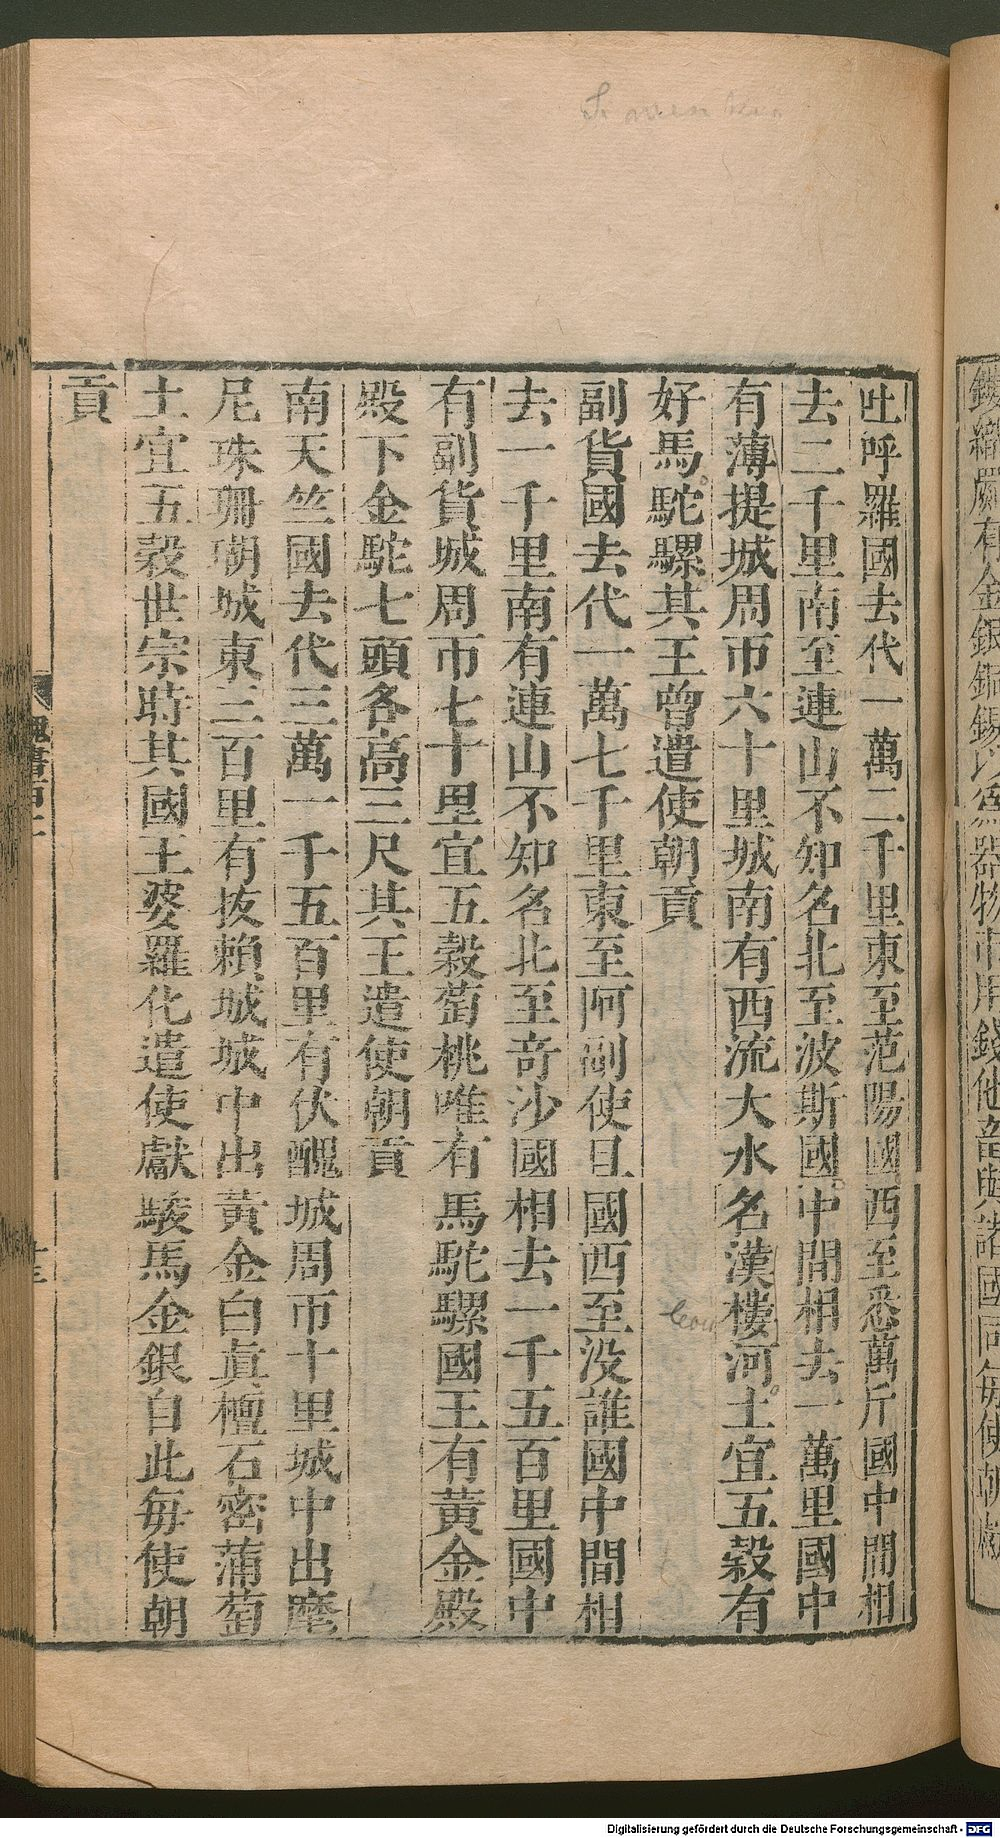 吐呼羅國去代一萬二千里東至范陽國西至悉萬斤國中間相
去二千里南至連山不知名北至波斯國中間相去一萬里國中
有薄提城周帀六十里城南有西流大水名漢樓河土宜五穀有
好馬駝騾其王曾遣使朝貢
副貨國去代一萬七千里東至阿副使且國西至没誰國中間相
去一千里南有連山不知名北至奇沙國相去一千五百里國中
有副貨城周帀七十里宜五穀萄桃唯有馬駝騾國王有黃金殿
殿下金駝七頭各高三尺其王遣使朝貢
南天竺國去代三萬一千五百里有伏醜城周帀十里城中出磨
尼珠珊瑚城東三百里有拔賴城城中出黃金白真檀石密蒲萄
土宜五穀世宗時其國王婆羅化遣使獻駿馬金銀自此每使朝
貢
魏書百二
十三
Digitalisierung gefördert durch die Deutsche Forschungsgemeinschaft - DFG